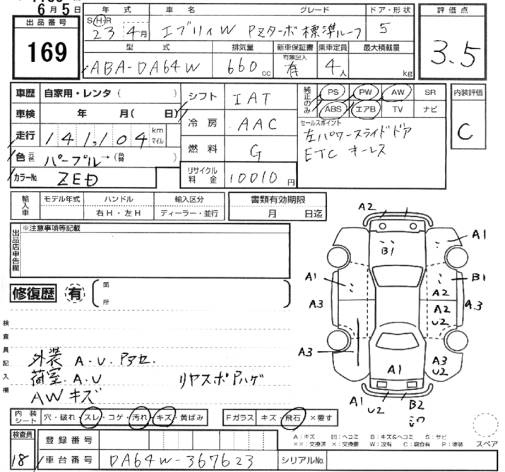 6月5日
出品番号
169
年式
SH R
23年4月
車名
エブリィW
グレード
PZターボ標準ルーフ
ドア・形状
5
評価点
3.5
型式
ABA-DA64W
排気量
660cc
新車保証書
有
乗車定員
4人
最大積載量
kg
車歴 自家用・レンタ( )
車検 年 月( 日)
走行 141,104 km マイル
色 パープル→( )
カラーNo. ZED
シフト IAT
冷房 AAC
燃料 G
リサイクル料金 10010円
純正のみ
PS PW AW SR
ABS エアB TV ナビ
セールスポイント
左パワースライドドア
ETC キーレス
内装評価
C
輸入車
モデル年式
ハンドル
右H・左H
輸入区分
ディーラー・並行
書類有効期限
月 日迄
出品店申告欄
※注意事項等記載
修復歴 有
箇所
検査員記入欄
外装 A.U. アタセ.
荷室 A.U リヤスポアハゲ
AWキズ
A2
A1
B1
A1
B1
A2
A3
A3
A2
U2
A3
A3
U2
A1
A1
U2
B2
スペア
内装シート
穴・破れ・スレ・コゲ・汚れ・キズ・黄ばみ
Fガラス キズ・飛石 ×要す
A:キズ U:ヘコミ B:キズ&ヘコミ S:サビ
XX:交換済 X:要交換 W:波有 C:腐食有 P:塗装
検査員
18
登録番号
車台番号 DA64W-367623
シリアルNo.